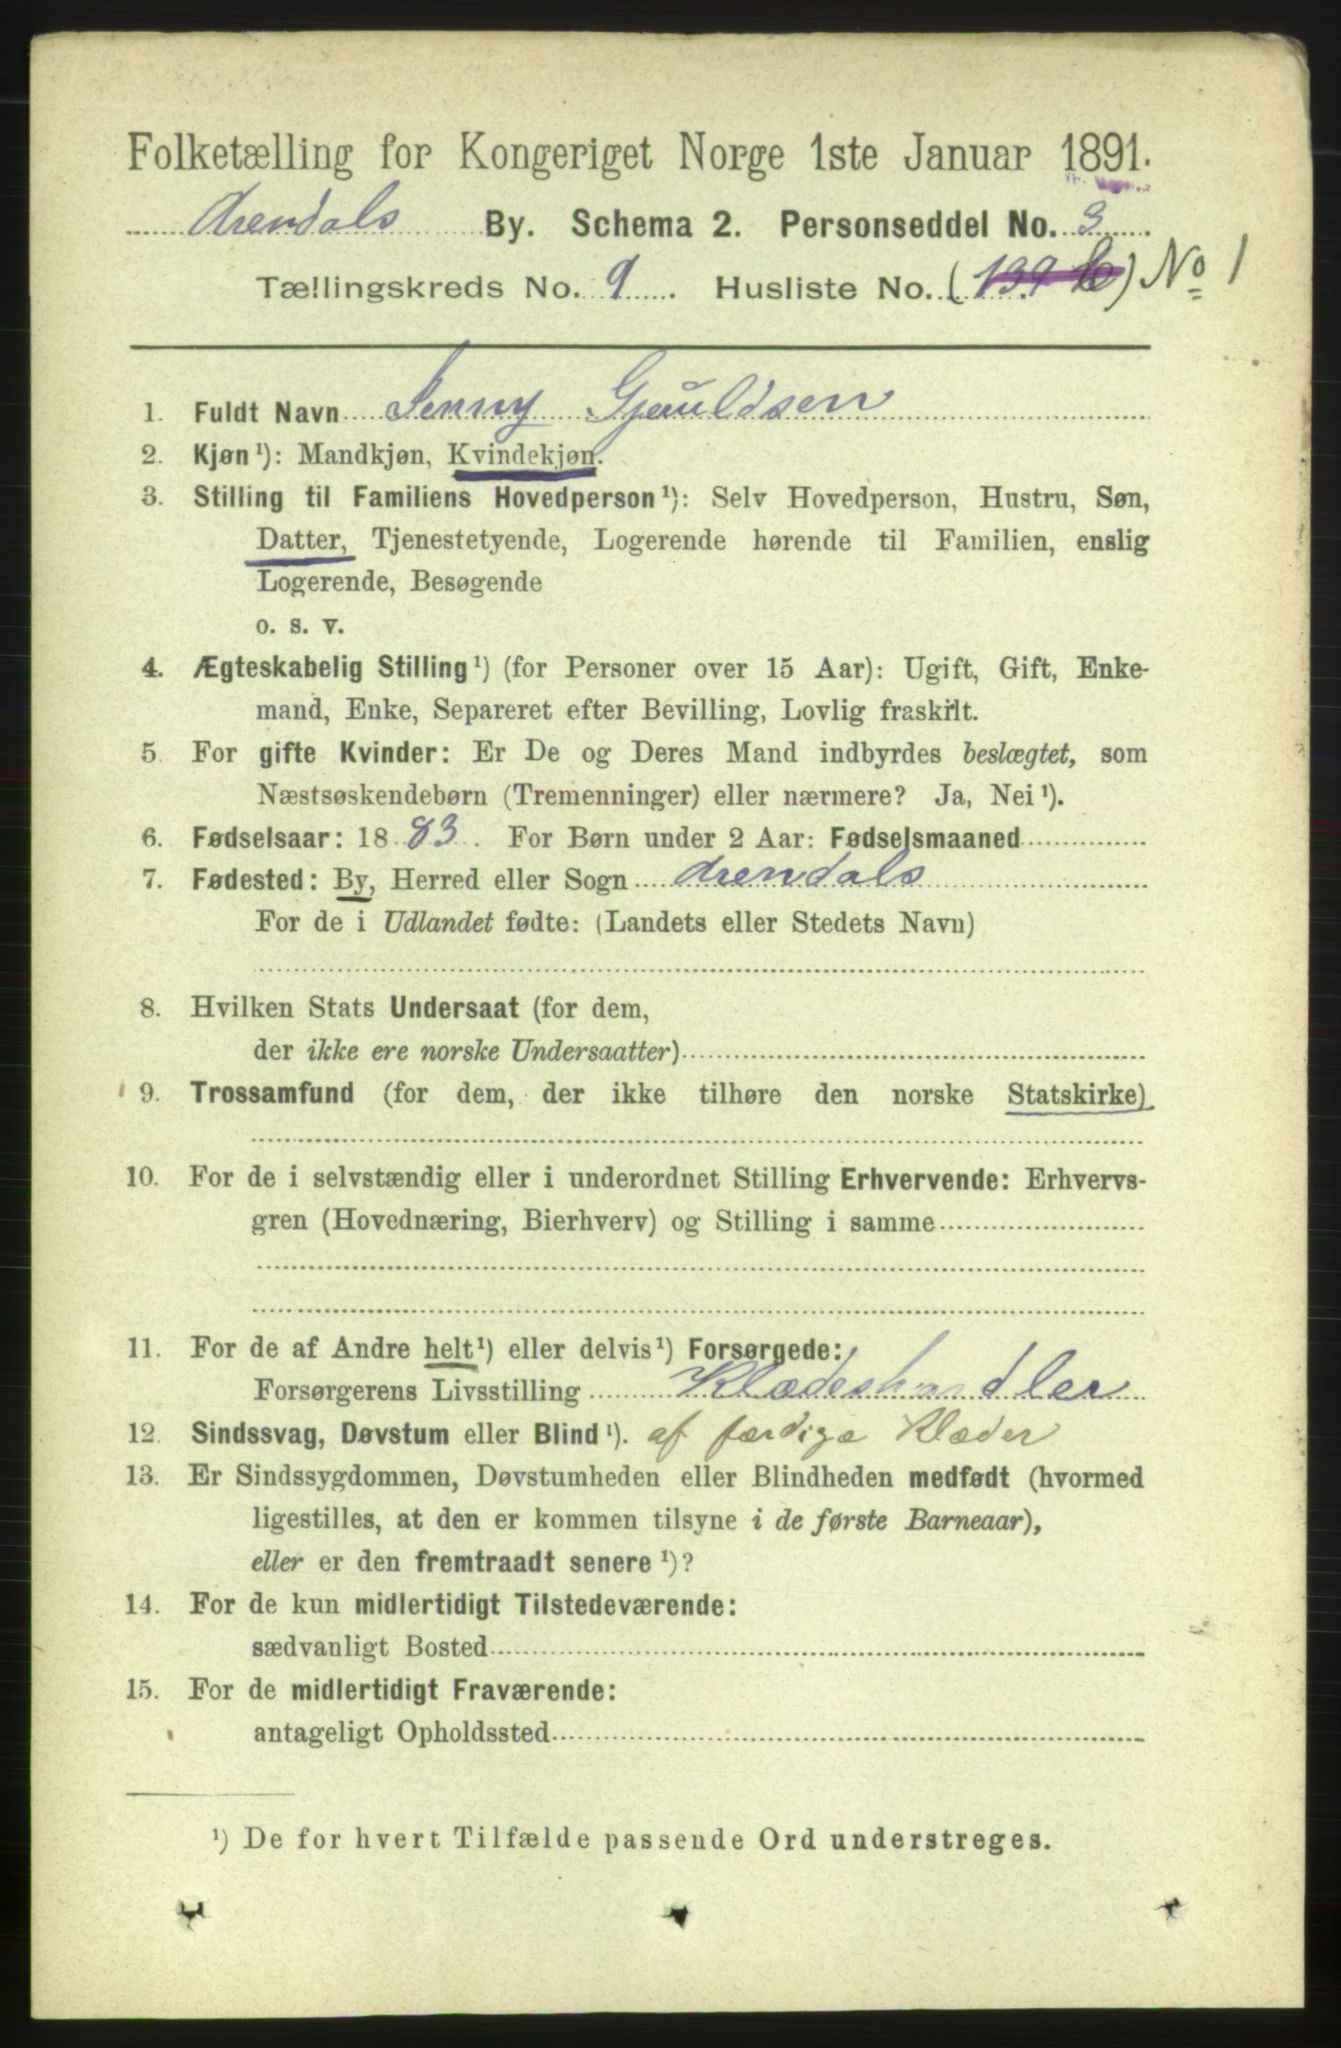 Folketælling for Kongeriget Norge 1ste Januar 1891.
Arendals By. Schema 2. Personseddel No. 3
Tællingskreds No. 9. Husliste No. (139 b) No 1
1. Fuldt Navn Jenny Gjeruldsen
2. Kjøn¹): Mandkjøn, Kvindekjøn.
3. Stilling til Familiens Hovedperson¹): Selv Hovedperson, Hustru, Søn,
Datter, Tjenestetyende, Logerende hørende til Familien, enslig
Logerende, Besøgende
o. s. v.
4. Ægteskabelig Stilling¹) (for Personer over 15 Aar): Ugift, Gift, Enke-
mand, Enke, Separeret efter Bevilling, Lovlig fraskilt.
5. For gifte Kvinder: Er De og Deres Mand indbyrdes beslægtet, som
Næstsøskendebørn (Tremenninger) eller nærmere? Ja, Nei¹).
6. Fødselsaar: 1883. For Børn under 2 Aar: Fødselsmaaned
7. Fødested: By, Herred eller Sogn Arendals
For de i Udlandet fødte: (Landets eller Stedets Navn)
8. Hvilken Stats Undersaat (for dem,
der ikke ere norske Undersaatter)
9. Trossamfund (for dem, der ikke tilhøre den norske Statskirke)
10. For de i selvstændig eller i underordnet Stilling Erhvervende: Erhvervs-
gren (Hovednæring, Bierhverv) og Stilling i samme
11. For de af Andre helt¹) eller delvis¹) Forsørgede:
Forsørgerens Livsstilling Klædeshandler
12. Sindssvag, Døvstum eller Blind¹). af færdige Klæder
13. Er Sindssygdommen, Døvstumheden eller Blindheden medfødt (hvormed
ligestilles, at den er kommen tilsyne i de første Barneaar),
eller er den fremtraadt senere¹)?
14. For de kun midlertidigt Tilstedeværende:
sædvanligt Bosted
15. For de midlertidigt Fraværende:
antageligt Opholdssted
¹) De for hvert Tilfælde passende Ord understreges.